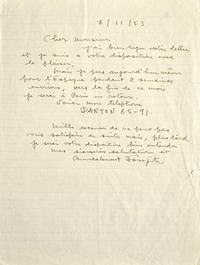 7/11/53
Cher Monsieur
j'ai bien reçu votre lettre
et je suis a votre disposition avec
le plaisir,
mais je pars aujourd'hui même
pour l'Espagne pendant 2 semaines
environs, vers la fin de ce mois
je serai à Paris en retour.
mon telephone
DANTON 65-91.
Mille excuses de ne pas
vous satisfaire de suite mais, plus tard
je serai votre disposition bien entendu
mes sincères salutations et